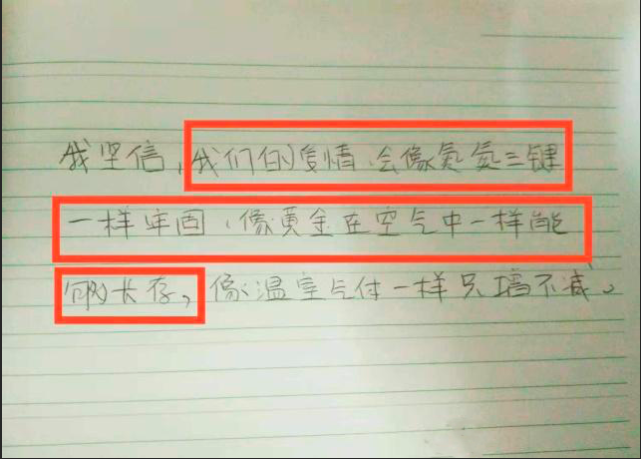 我坚信,我们的爱情.会像氮氮三键
一样牢固.像黄金在空气中一样能
够长存,像温室气体一样只增不减。